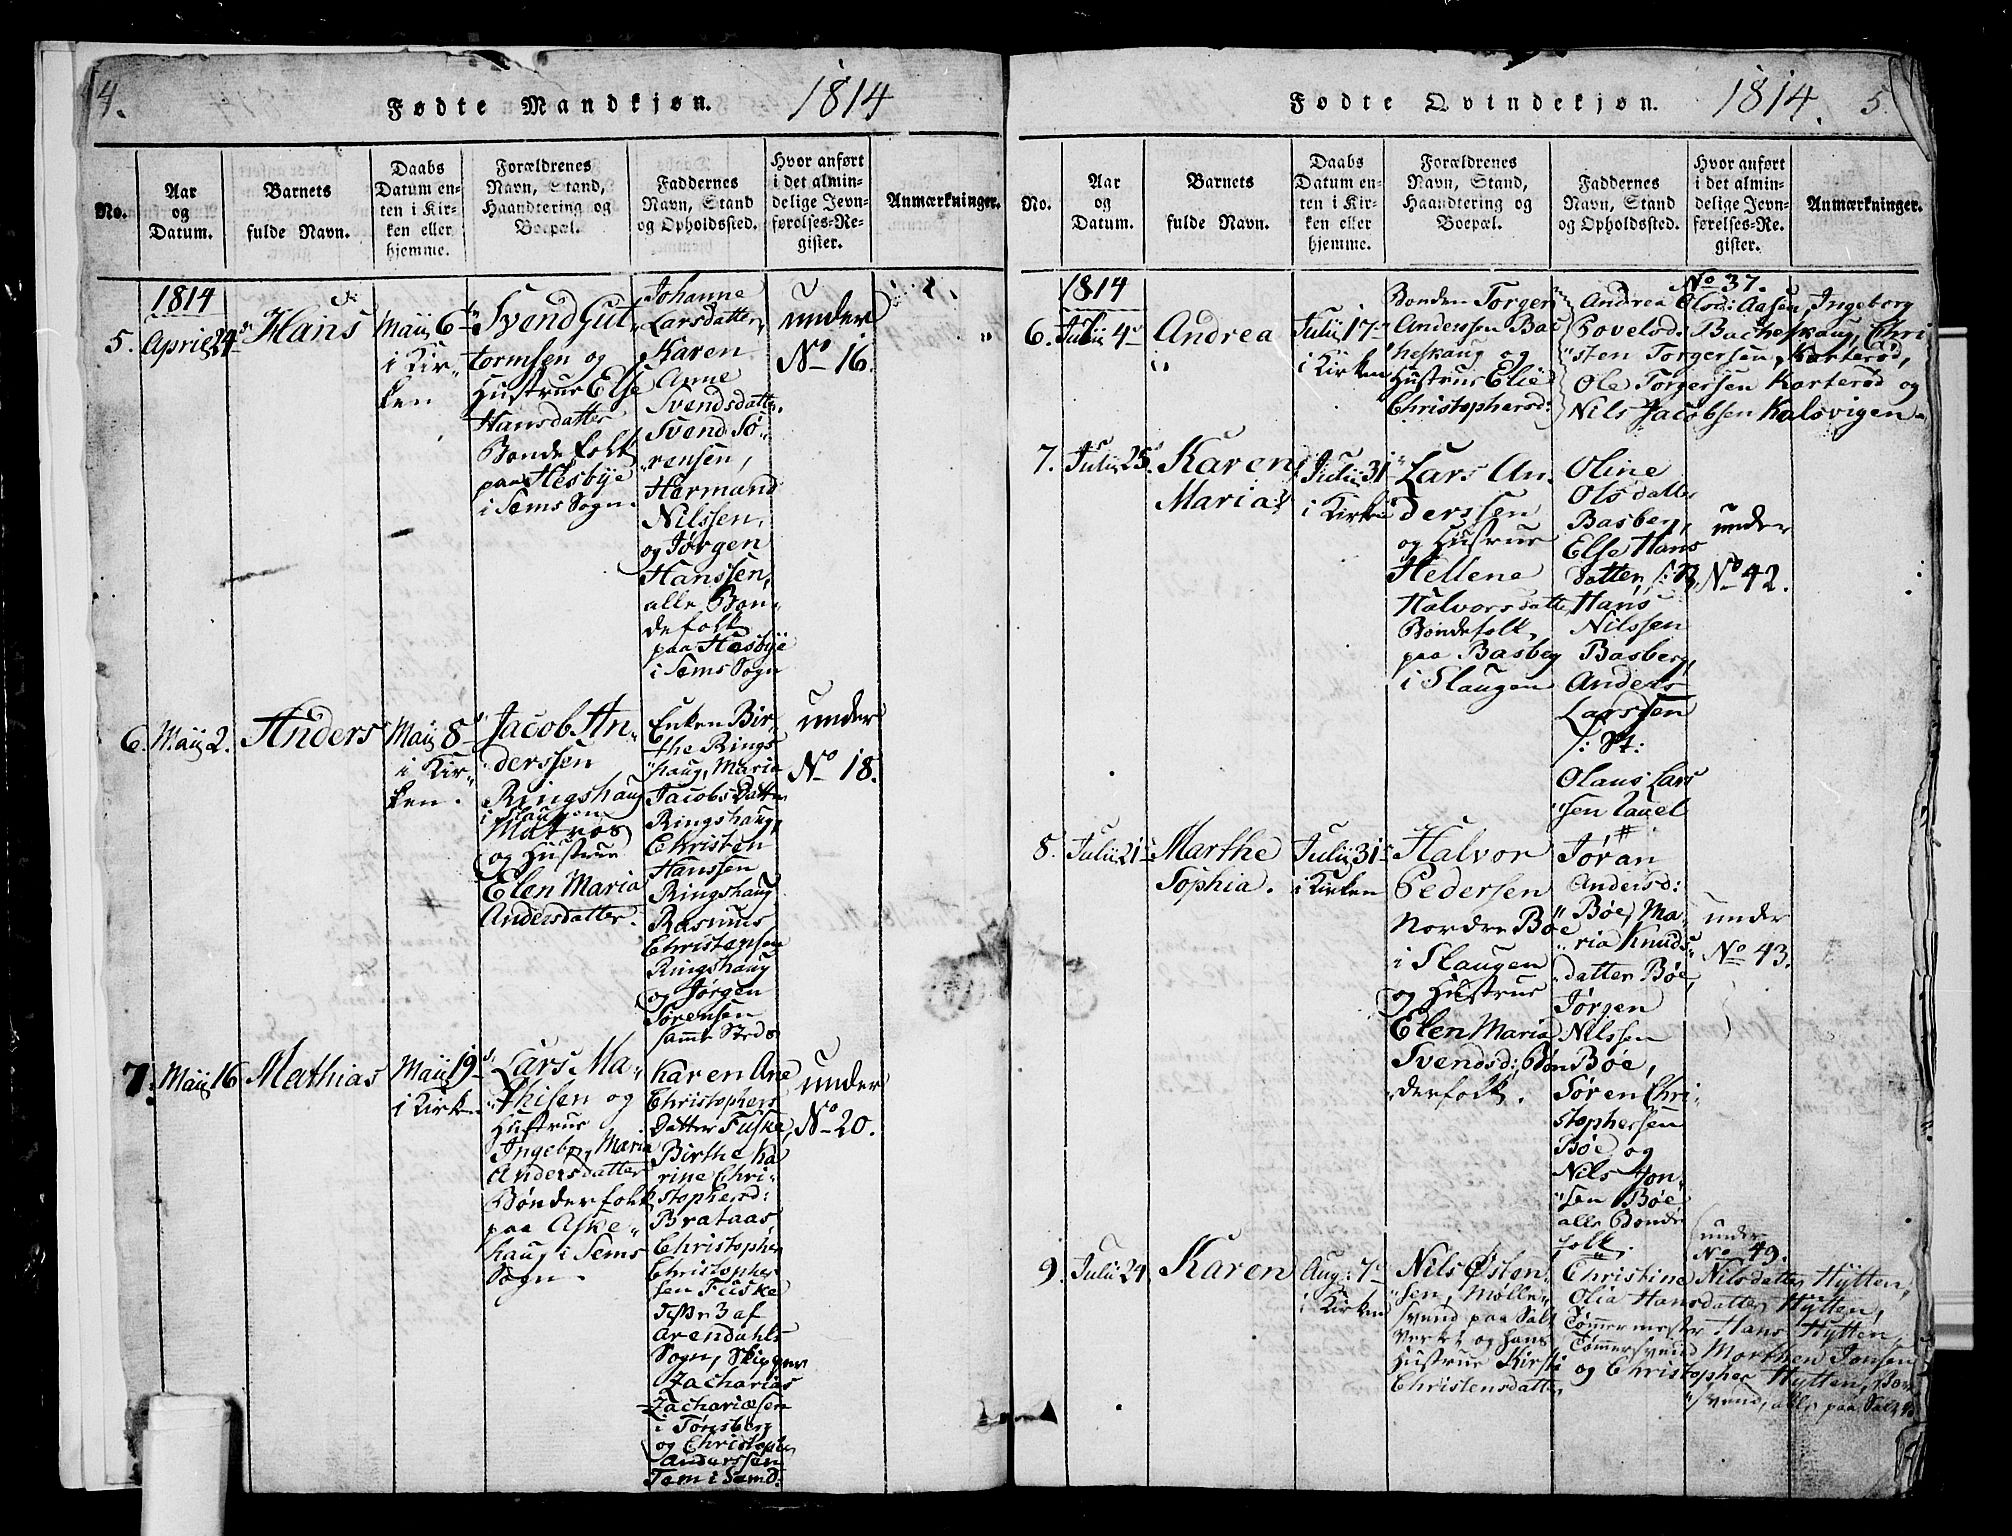 4.
Fødte Mandkjøn.
1814
No.
Aar
og
Datum.
Barnets
fulde Navn.
Daabs
Datum en-
ten i Kir-
ken eller
hjemme.
Forældrenes
Navn, Stand,
Haandtering og
Boepæl.
Faddernes
Navn, Stand
og Opholdssted.
Hvor anført
i det almin-
delige Jevn-
førelses-Re-
gister.
Anmærkninger.
1814
5. April 24
Hans
Maij 6
i Kir-
ken
Svend Gut
tormsen og
Hustrue Else
Hansdatter
Bondefolk
paa Hesbye
i Sems Sogn.
Johanne
Larsdatter,
Karen
Anne
Svendsdatter.
Svend Sø-
rensen,
Hermand
Nilssen,
og Jørgen
Hanssen,
alle Bon-
defolk
paa Hesbye
i Sems Sogn
under
No 16.
6. Maij 2.
Anders
Maij 8
i Kir-
ken.
Jacob An-
derssen
Ringshaug
i Slaugen
Matros
og Hustrue
Elen Maria
Andersdatter.
Enken Bir-
the Rings
haug, Maria
Jacobs Datter
Ringshaug,
Christen
Hanssen
Ringshaug
Rasmus
Christensen
Ringshaug
og Jørgen
Sørensen
samme Steds
under
No 18.
7. Maij 16
Mathias
Maij 19
i Kirken
Lars Ma-
thisen og
Hustrue
Ingeborg Maria
Andersdatter
Bønderfolk
paa Aske-
haug i Sems
Sogn.
Karen Ane
Christophers
Datter Fuske,
Birthe Ka
rine Chri-
stophersd:
Brataas,
Christopher
Christopher
sen Fuske
disse 3 af
Arendahls
Sogn, Skipper
Zacharias
Zachariæsen
i Tønsberg
og Christopher
Anderssen
Tem i Semd.
under
No 20.
Fødte Qvindekjøn.
1814.
5.
No.
Aar
og
Datum.
Barnets
fulde Navn.
Daabs
Datum en-
ten i Kir-
ken eller
hjemme.
Forældrenes
Navn, Stand,
Haandtering og
Boepæl.
Faddernes
Navn, Stand
og Opholdssted.
Hvor anført
i det almin-
delige Jevn-
førelses-Re-
gister.
Anmærkninger.
1814
6. Julij 4
Andrea
Julij 17
i Kirken
Bonden Torger
Anderssen Bac
heskaug og
Hustrue Elie
Christophersd:
No 37.
Andrea Olsd: Aasen, Ingeborg
Povelsd: Bacheskaug, Chri
sten Torgersen Korterød,
Ole Torgersen Korterød og
Nils Jacobsen Kalsvigen
7. Julij 25
Karen
Maria
Julij 31
i Kirken
Lars An-
derssen
og Hustrue
Hellene
Halvorsdatter
Bondefolk
paa Basberg
i Slaugen
Oline
Olsdatter
Basberg,
Else Hans
datter,
Hans
Nilssen
Basberg,
Anders
Larssen
/: St:
Olaus Lars
sen
under
No 42.
8. Julij 21
Marthe
Sophia.
Julij 31
i Kirken
Halvor
Pedersen
Nordre Bøe
i Slaugen
og Hustrue
Elen Maria
Svendsd: Bøn
derfolk.
Jøran
Andersd:
Bøe, Ma-
ria Knuds
datter Bøe,
Jørgen
Nilssen
Bøe,
Søren Chri-
stophersen
Bøe og
Nils Jon-
sen Bøe
alle Bonde
folk.
under
No 43.
9. Julij 24
Karen
Aug: 7
i Kirken
Nils Østen-
sen, Mølle-
svend paa Salt
verket og hans
Hustrue Kirsti
Christensdatter
under
No 49.
Christine Nilsdatter Hytten,
Olia Hansdatter Hytten,
Tømmermester Hans Hytten,
Tømmersvend Morthen Jonsen
og Christopher Hytten,
svend, alle paa